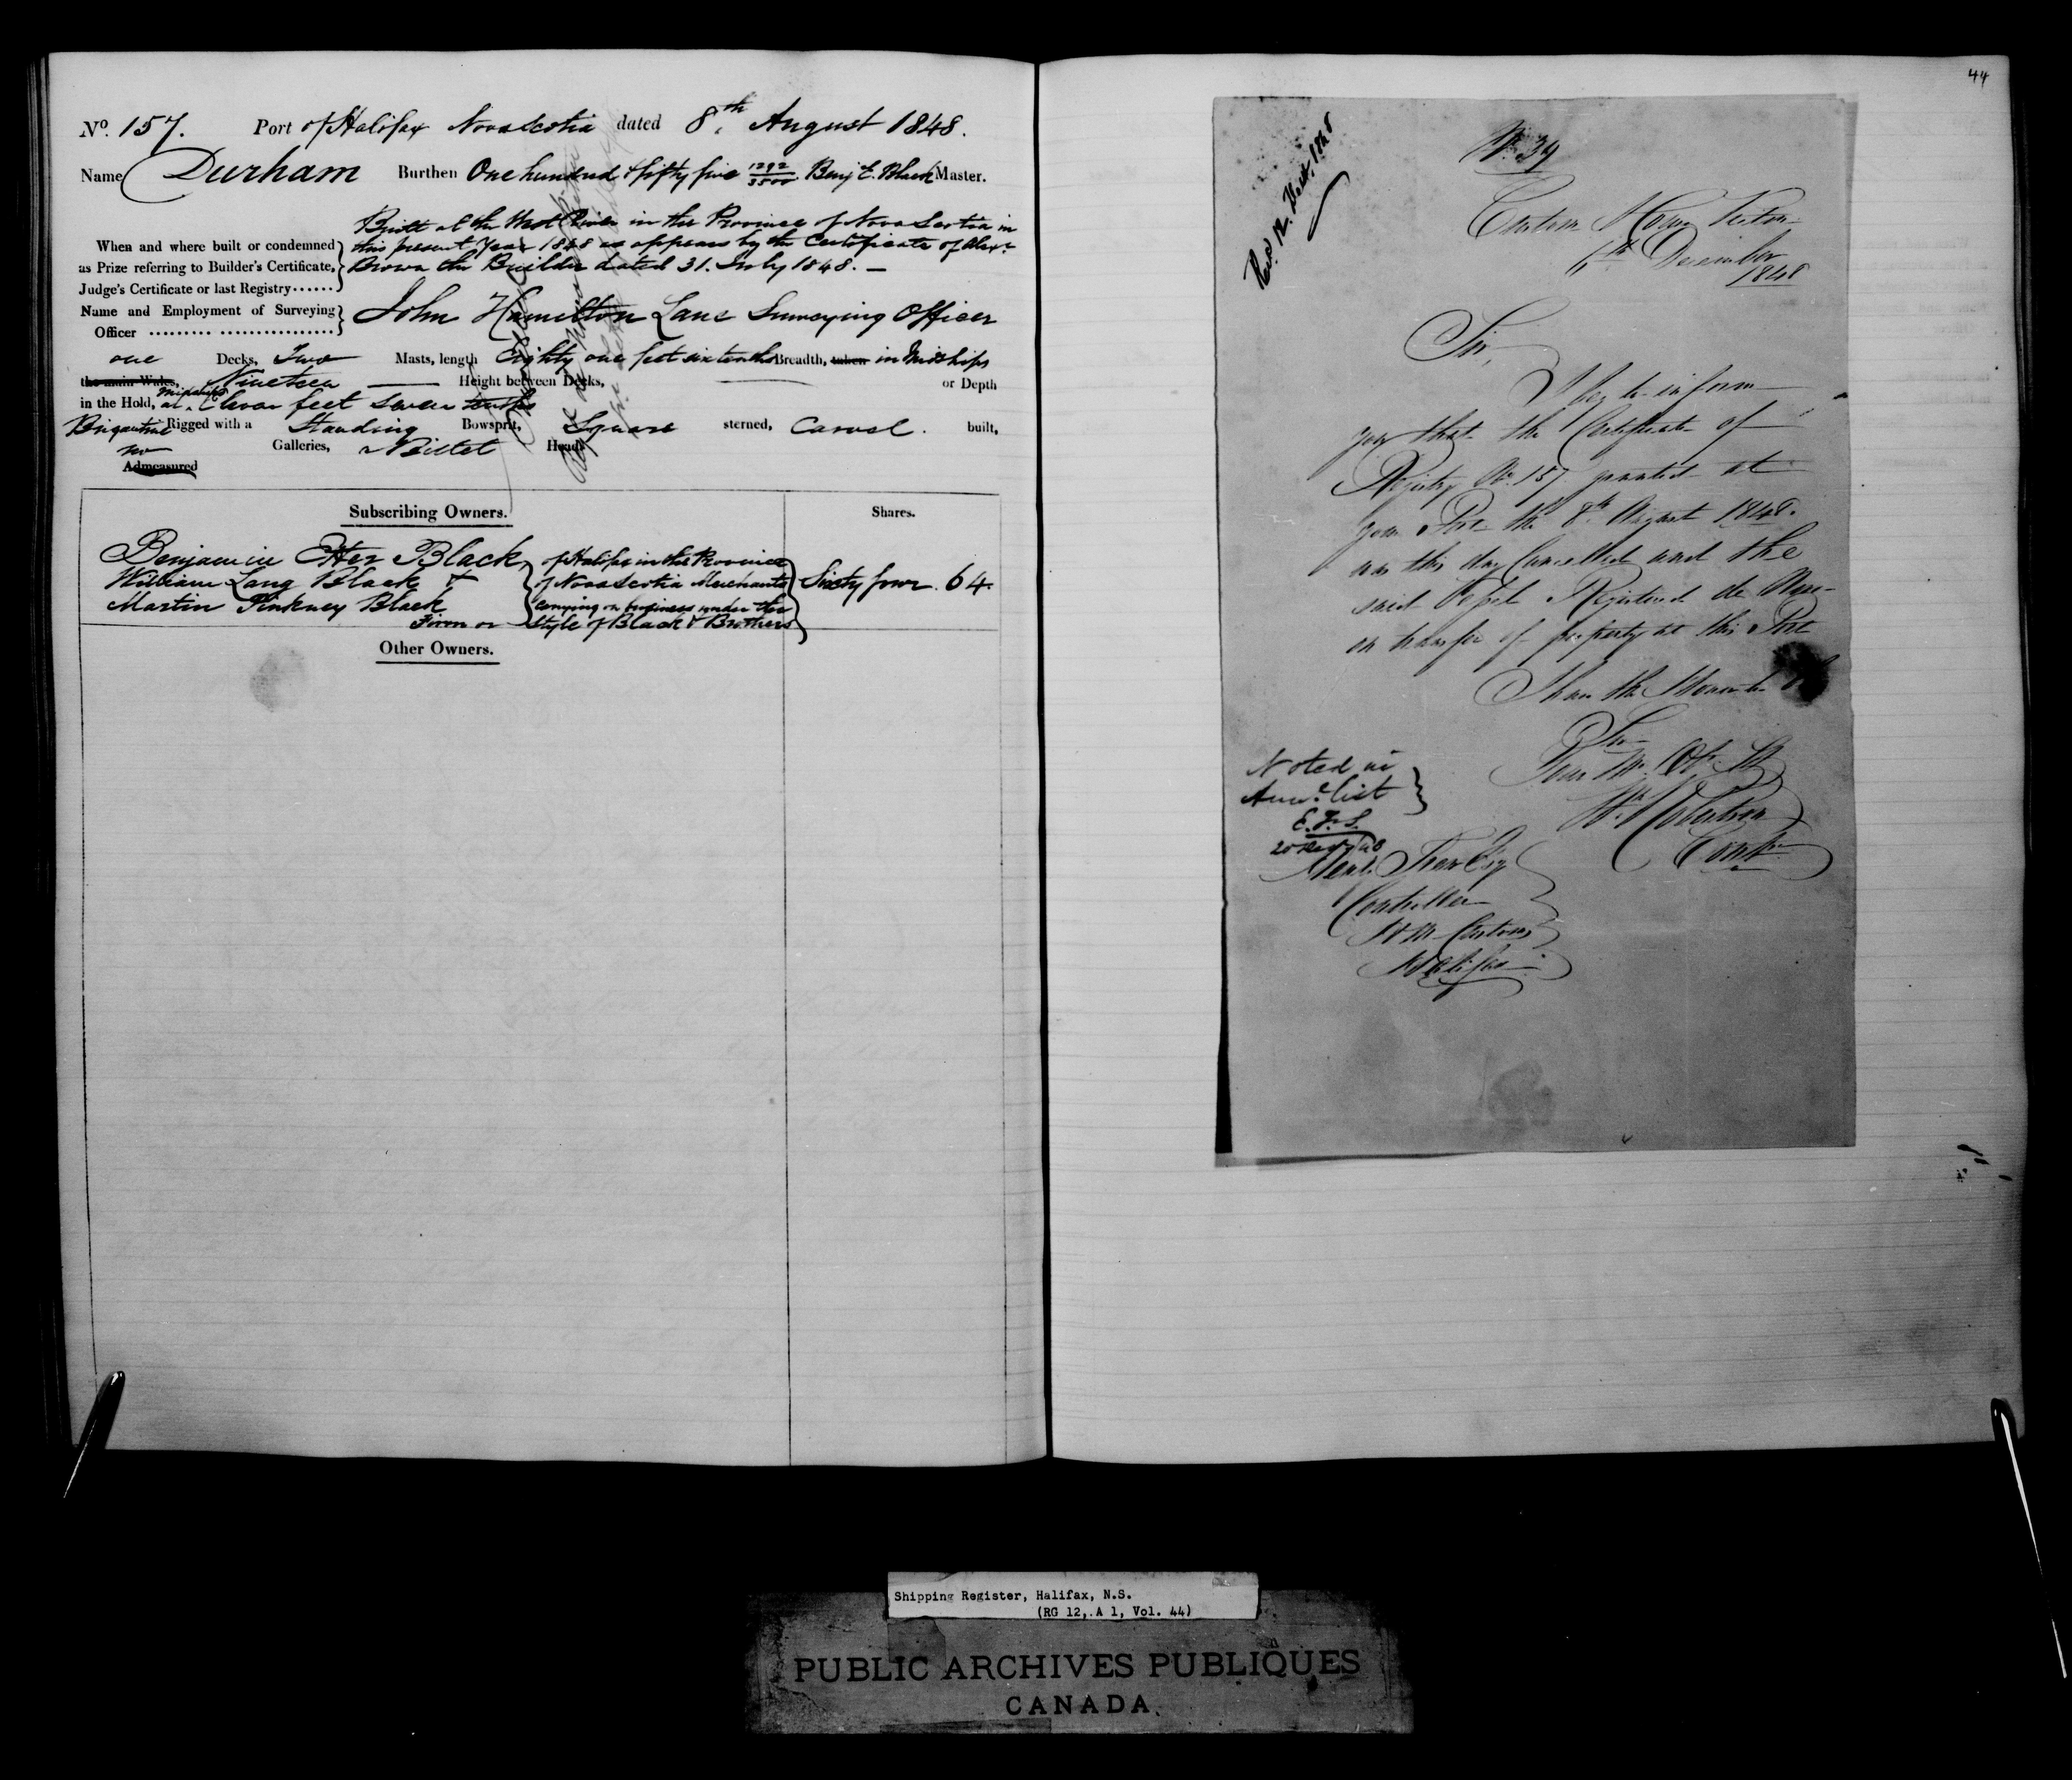 No. 157. Port of Halifax Nova Scotia dated 8th August 1848.
Name Durham Burthen One hundred & fifty five 1292/3500 Benj E. Black Master.
Built at the West River in the Province of Nova Scotia in
this present Year 1848 as appears by the Certificate of Alexr
Brown the Builder dated 31. July 1848. —
When and where built or condemned
as Prize referring to Builder's Certificate,
Judge's Certificate or last Registry......
Name and Employment of Surveying
Officer ......... ................
John Hamilton Lane Surveying Officer
one Decks, Two Masts, length Eighty one feet six tenths Breadth, taken in Midships
the main Wales, Nineteen — Height between Decks, — or Depth
in the Hold, at midships Eleven feet seven tenths
Brigantine Rigged with a Standing Bowsprit, Square sterned, Carvel. built,
no Galleries, Billet Head
Admeasured
Subscribing Owners.
Shares.
Benjamin Etter Black,
William Lang Black &
Martin Pinkney Black
of Halifax in the Province
of Nova Scotia Merchants
carrying on business under the
Firm or Style of Black & Brothers
Sixty four. 64.
Other Owners.
44
Recd. 12. Decr. 1848
No. 39
Custom House
6th December
1848
Sir,
I beg to inform
you that the Certificate of
Registry No. 157 granted at
your Port the 8th August 1848.
was this day Cancelled and the
said Vessel Registered de Novo
on transfer of property at this Port
I have the Honor to be
Sir
Your Mo. Obt. St
Wm. Robertson
Contr
Noted in
list
E.F.S.
20 Decr 48
Esq
Controller
H M Customs
Halifax
Shipping Register, Halifax, N.S.
(RG 12, A 1, Vol. 44)
PUBLIC ARCHIVES PUBLIQUES
CANADA